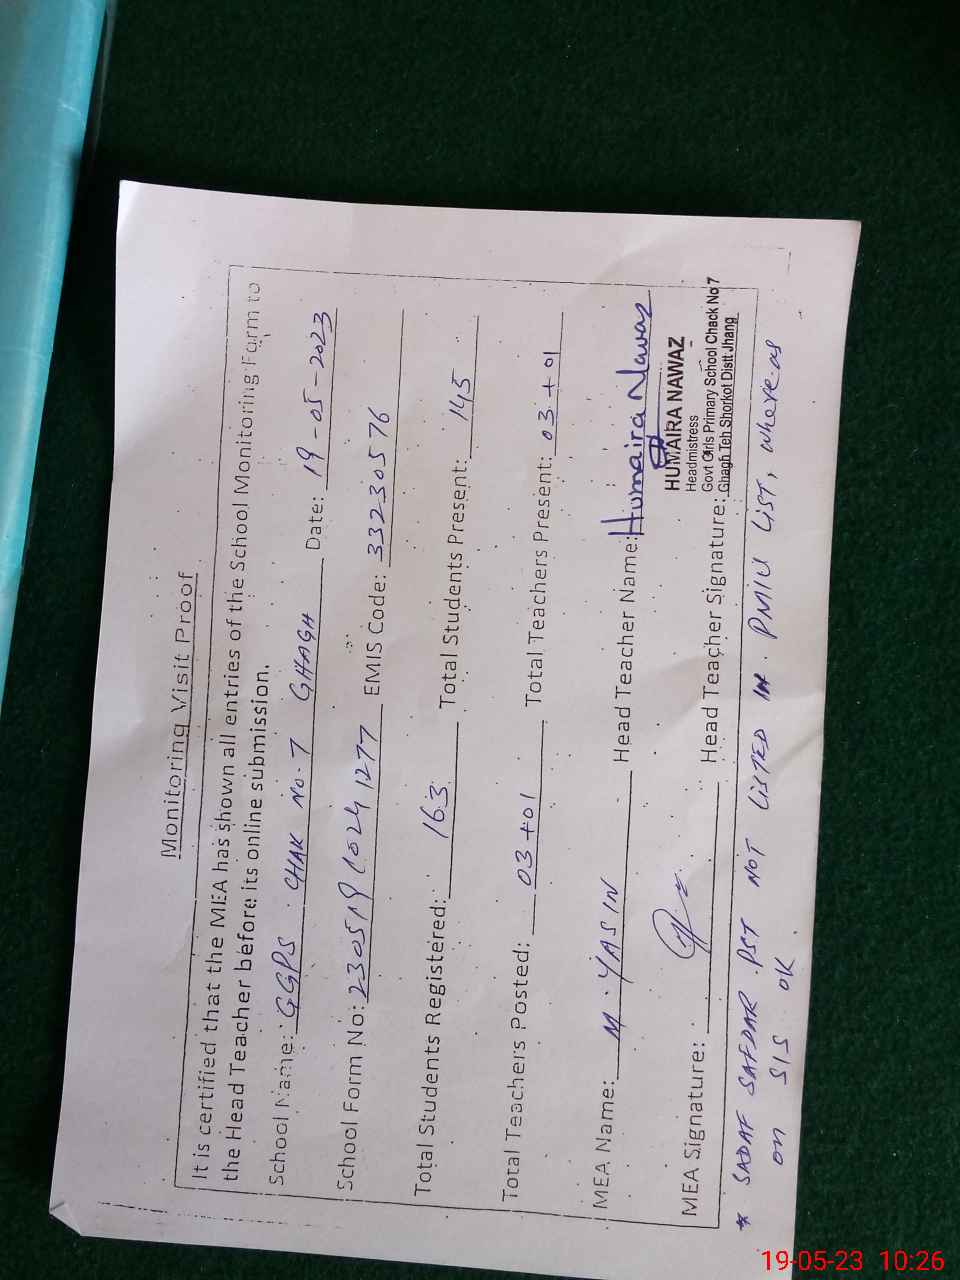 Monitoring Visit Proof
It is certified that the MEA has shown all entries of the School Monitoring Form to
the Head Teacher before its online submission.
School Name: GGPS CHAK NO. 7 GHAGH Date: 19-05-2023
School Form No: 230519 1024 1277 EMIS Code: 33230576
Total Students Registered: 163 Total Students Present: 145
Total Teachers Posted: 03+01 Total Teachers Present: 03+01
MEA Name: M. YASIN Head Teacher Name: Humaira Nawaz
HUMAIRA NAWAZ
Headmistress
Govt Girls Primary School Chack No 7
Ghagh Teh Shorkot Distt Jhang
MEA Signature: Head Teacher Signature:
* SADAF SAFDAR PST NOT LISTED IN PMIU LIST, whereas
on SIS OK
19-05-23 10:26